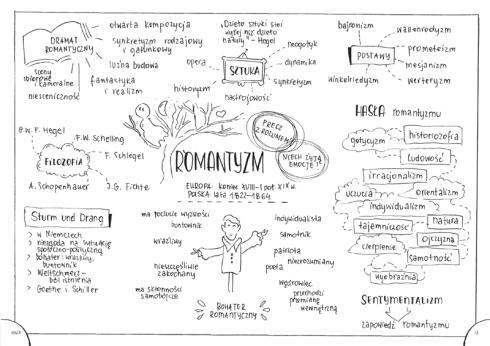 DRAMAT
ROMANTYCZNY
otwarta kompozycja
synkretyzm rodzajowy
i gatunkowy
luźna budowa
fantastyka
i realizm
sceny
zbiorowe
i kameralne
niesceniczność
"Dzieło sztuki stoi
wyżej niż dzieło
natury" - Hegel
SZTUKA
opera
neogotyk
dynamika
synkretyzm
historyzm
nastrojowość
POSTAWY
bajronizm
wallenrodyzm
prometeizm
mesjanizm
werteryzm
winkelriedyzm
FILOZOFIA
G.W.F. Hegel
F.W. Schelling
F. Schlegel
J.G. Fichte
A. Schopenhauer
ROMANTYZM
EUROPA: koniec XVIII - I poł. XIX w.
POLSKA: lata 1822-1864
PRECZ
Z ROZUMEM!
NIECH ŻYJĄ
EMOCJE!
HASŁA romantyzmu
gotycyzm
historiozofia
ludowość
irracjonalizm
uczucia
orientalizm
indywidualizm
tajemniczość
natura
ojczyzna
cierpienie
samotność
wyobraźnia
SENTYMENTALIZM
zapowiedź romantyzmu
Sturm und Drang
> w Niemczech
> niezgoda na sytuację
społeczno-polityczną
> bohater: wrażliwy,
buntownik
> Weltschmerz -
ból istnienia
> Goethe i Schiller
BOHATER
ROMANTYCZNY
ma poczucie wyższości
buntownik
wrażliwy
nieszczęśliwie
zakochany
ma skłonności
samobójcze
indywidualista
samotnik
patriota
niezrozumiany
poeta
wędrowiec
przechodzi
przemianę
wewnętrzną